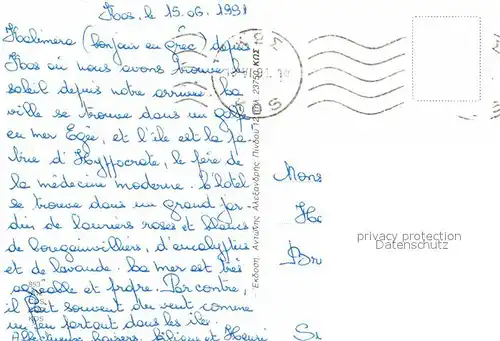 Kos, le 15.06.1991
Kalimera (bonjour en grec) depuis
Kos où nous avons trouvé le
soleil depuis notre arrivée. La
ville se trouve dans un golfe
en mer Egée, et l'île est la pa-
trie d'Hyppocrate, le père de
la médecine moderne. L'hôtel
se trouve dans un grand jar-
din de lauriers roses et blancs
de bougainvilliers, d'eucalyptus
et de lavande. La mer est très
agréable et propre. Par contre,
il fait souvent du vent comme
un peu partout dans les îles.
Affectueux baisers. Liliane et Henri
Mons
Bru
privacy protection
Datenschutz
Έκδοση: Αντώνης Αλεξανδρής Πίνδου 12 ΤΗΛ. 23750 ΚΩΣ
KOS